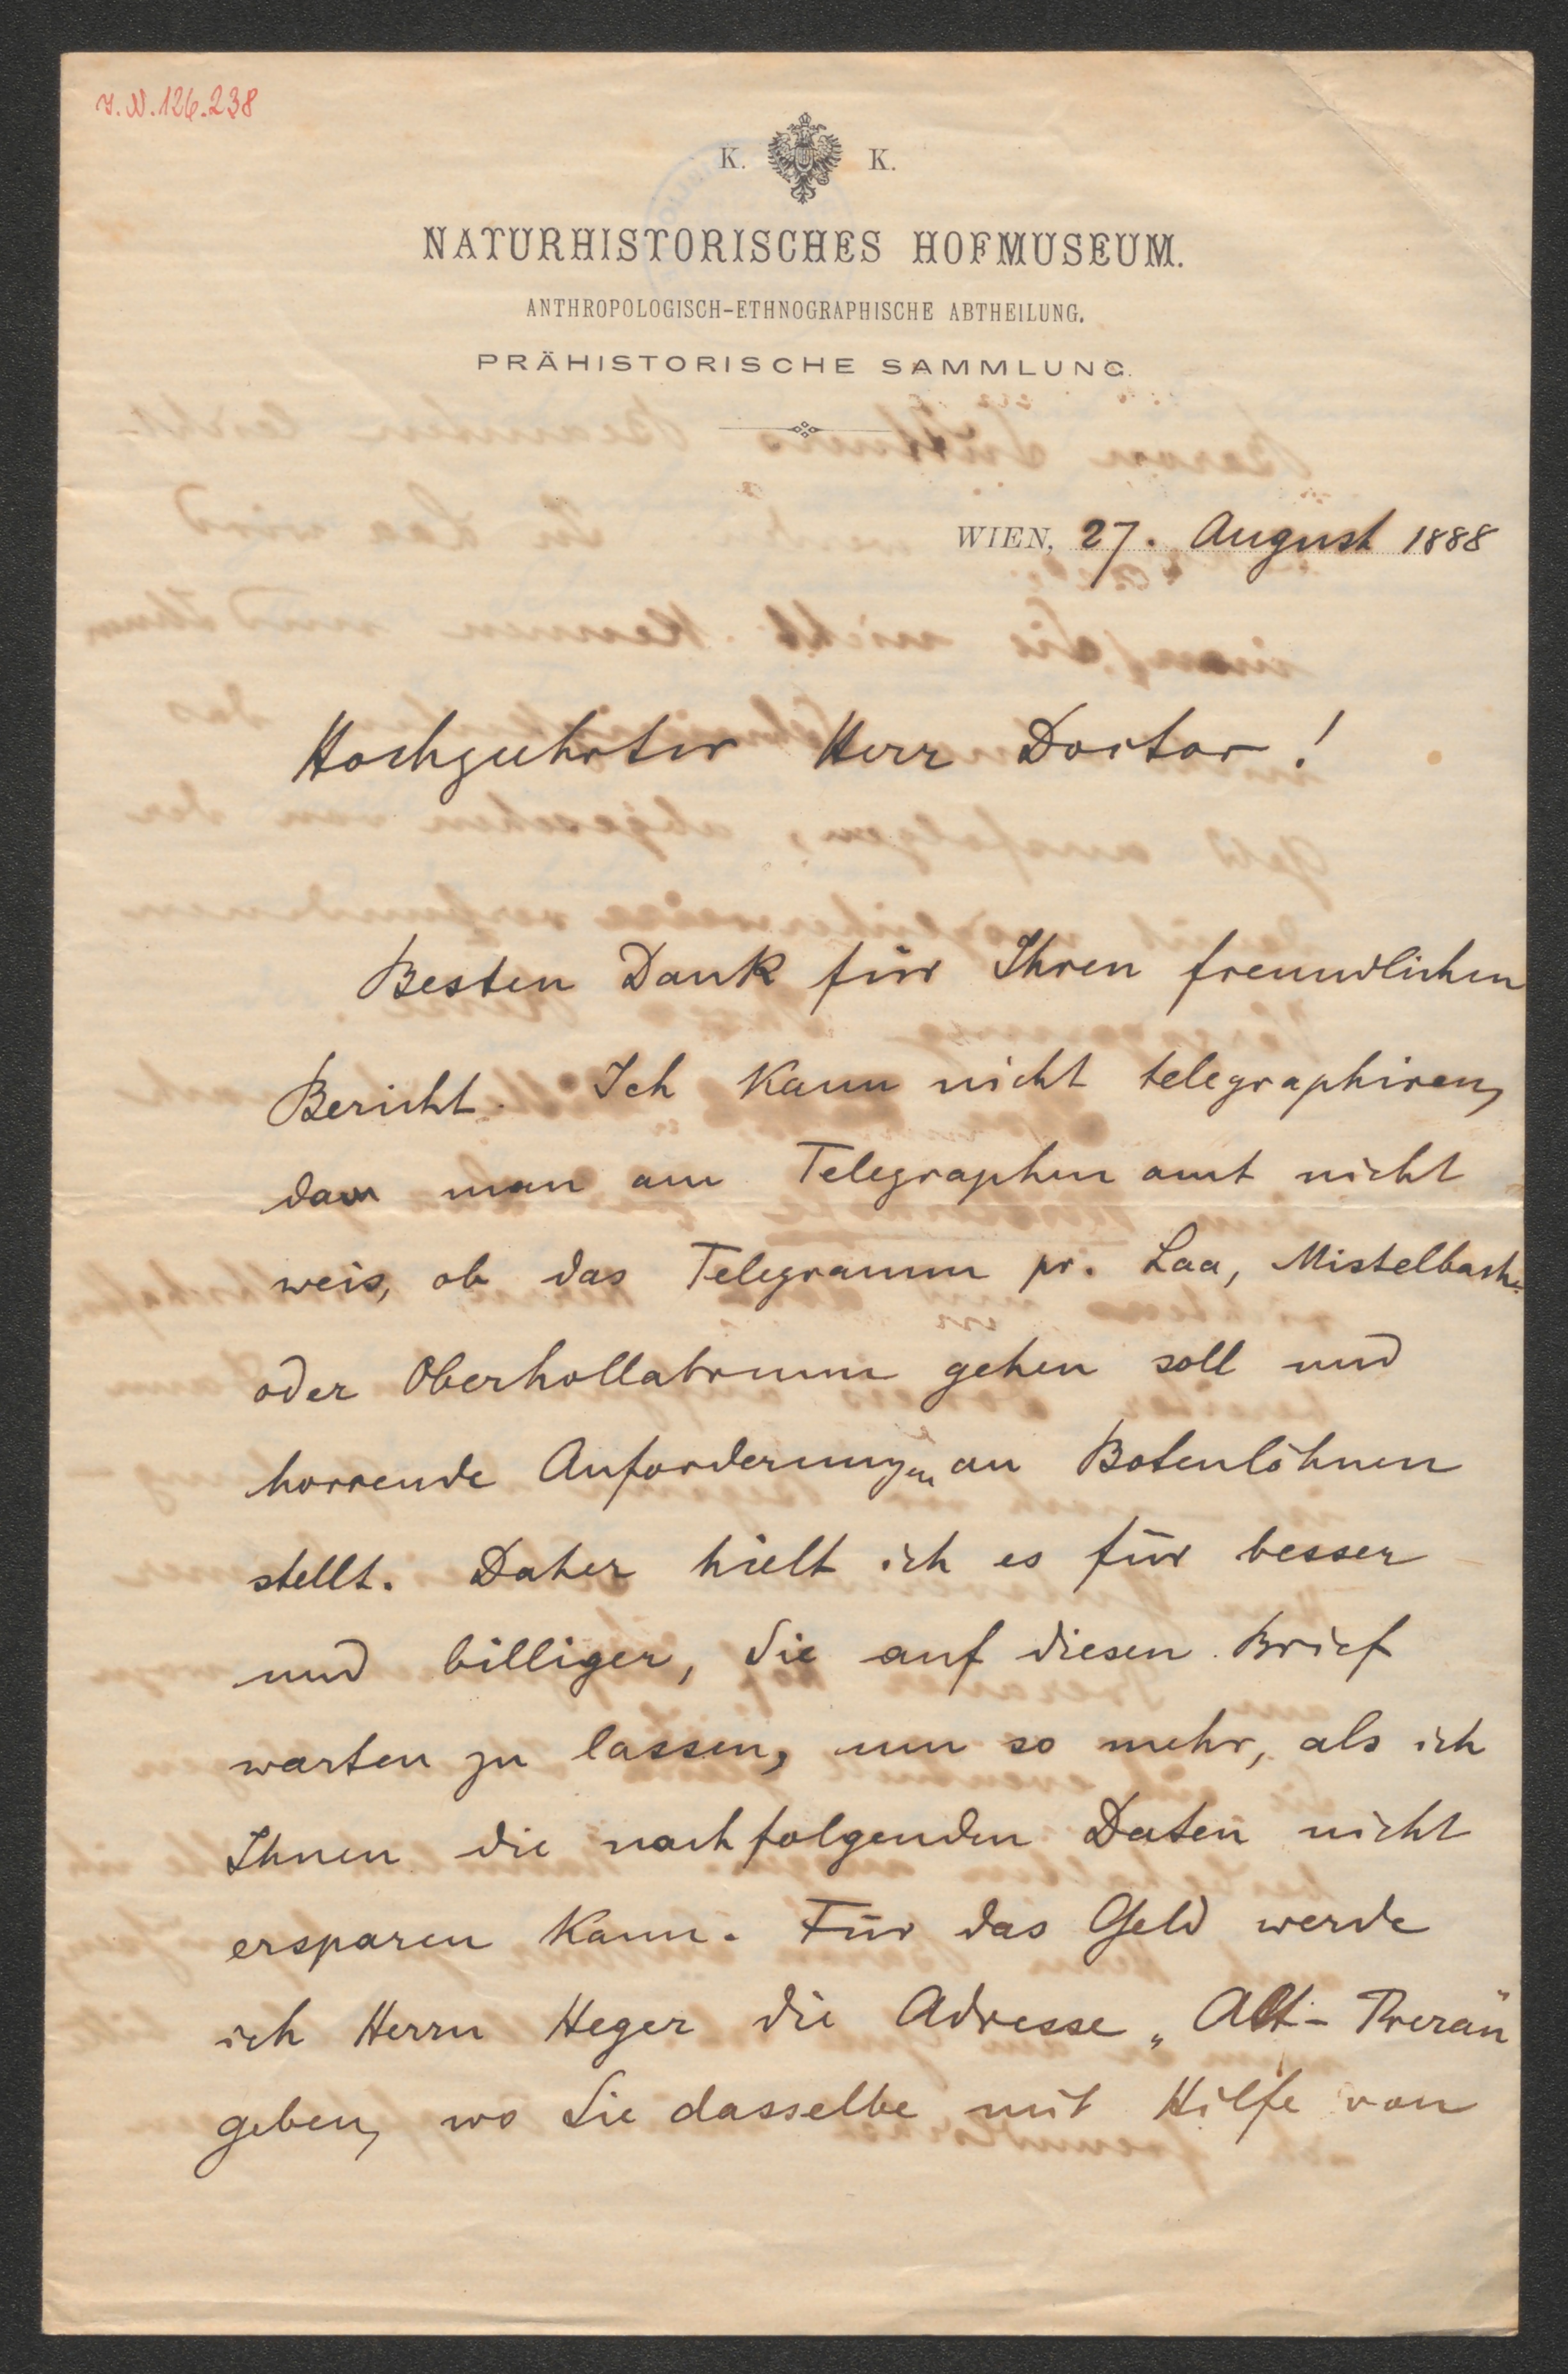 I.N. 126.238
K. K.
NATURHISTORISCHES HOFMUSEUM.
ANTHROPOLOGISCH-ETHNOGRAPHISCHE ABTHEILUNG.
PRÄHISTORISCHE SAMMLUNG.
WIEN, 27. August 1888
Hochgeehrter Herr Doctor!
Besten Dank für Ihren freundlichen
Bericht. Ich kann nicht telegraphiren,
da man am Telegraphenamt nicht
weis, ob das Telegramm pr. Laa, Mistelbach
oder Oberhollabrunn gehen soll und
horrende Anforderungen an Botenlöhnen
stellt. Daher hielt ich es für besser
und billiger, Sie auf diesen Brief
warten zu lassen, um so mehr, als ich
Ihnen die nachfolgenden Daten nicht
ersparen kann. Für das Geld werde
ich Herrn Heger die Adresse „Alt-Prerau"
geben, wo Sie dasselbe mit Hilfe von